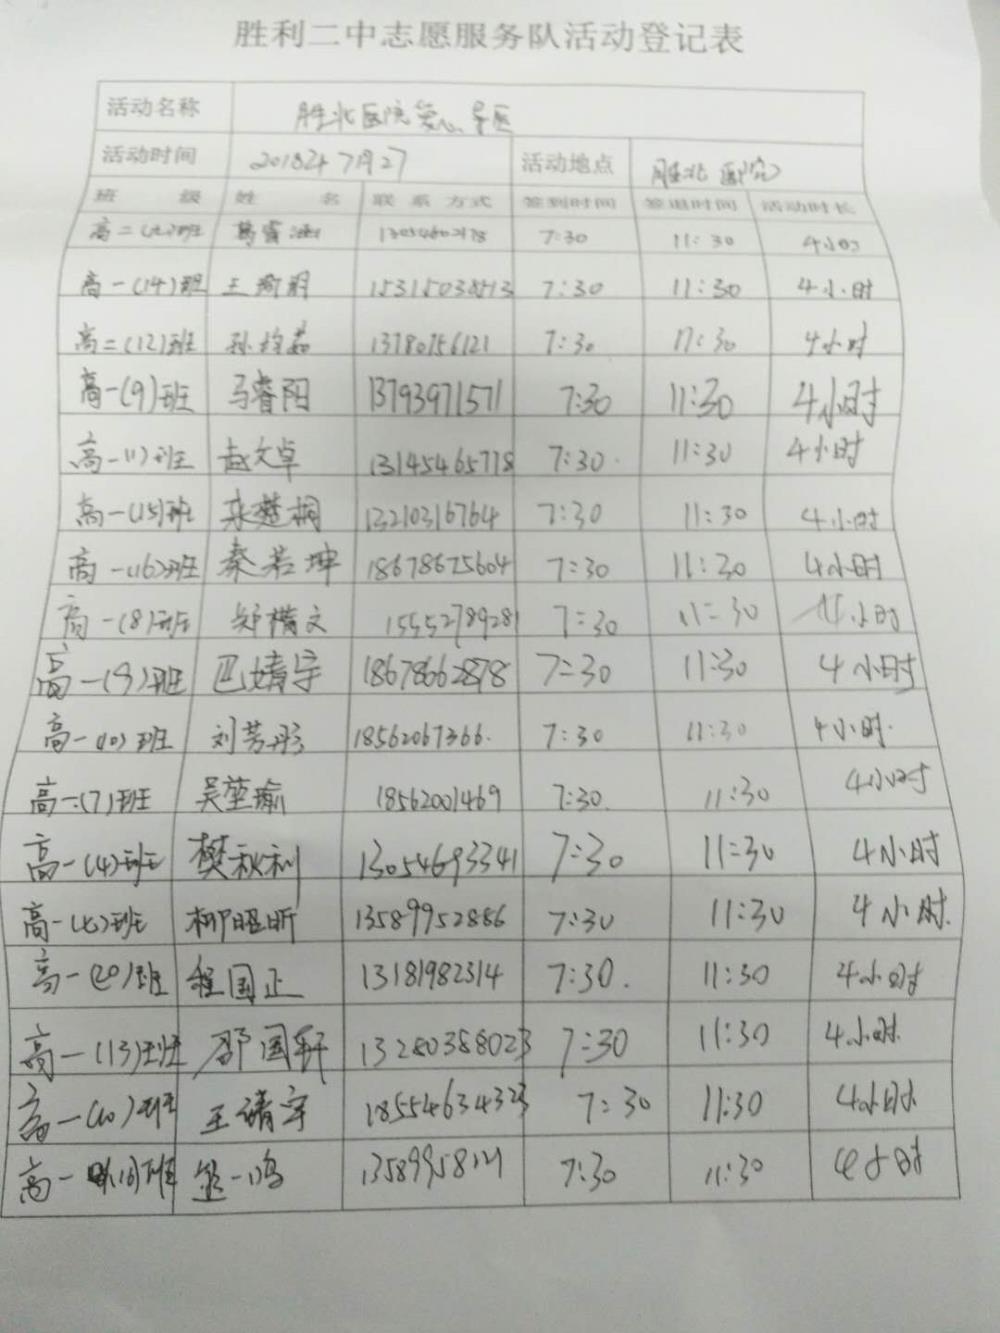 胜利二中志愿服务队活动登记表
活动名称 胜北医院爱心导医
活动时间 2018年7月27 活动地点 胜北医院
班级 姓名 联系方式 签到时间 签退时间 活动时长
高二 班 13054602178 7:30 11:30 4小时
高一(14)班 王 15315038513 7:30 11:30 4小时
高二(12)班 孙 13780156121 7:30 11:30 4小时
高一(9)班 马睿阳 13793971571 7:30 11:30 4小时
高一 班 赵文卓 13145465778 7:30 11:30 4小时
高一(15)班 楚桐 13210316764 7:30 11:30 4小时
高一(16)班 秦若坤 18678675604 7:30 11:30 4小时
高一(8)班 郑 文 15552789281 7:30 11:30 4小时
高一(9)班 巴婧宇 18678662878 7:30 11:30 4小时
高一(10)班 刘芳彤 18562067366. 7:30 11:30 4小时.
高一(7)班 吴堇瑜 18562001469 7:30. 11:30 4小时
高一(4)班 樊秋利 13054693341 7:30 11:30 4小时
高一(七)班 柳昭昕 13589952886 7:30 11:30 4小时.
高一(20)班 程国正 13181982314 7:30. 11:30 4小时
高一(13)班 邵国轩 13280388023 7:30 11:30 4小时.
高一(10)班 王靖宇 18554634323 7:30 11:30 4小时
高一 班 一鸣 7:30 11:30 4小时